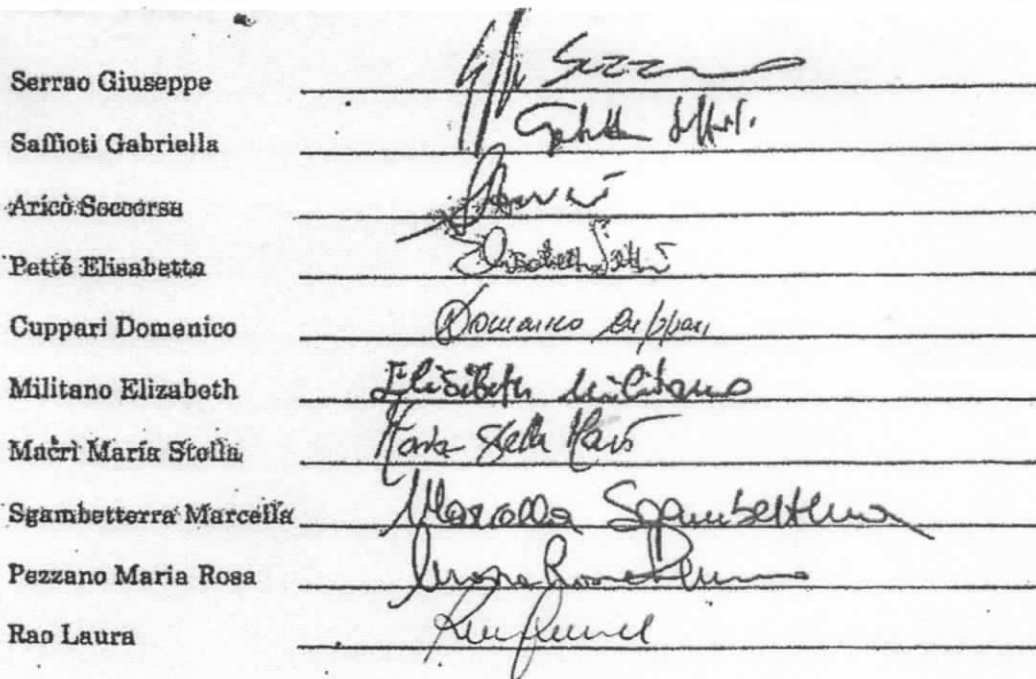 Serrao Giuseppe
Saffioti Gabriella
Aricò Soccorsa
Pettè Elisabetta
Cuppari Domenico Domenico Cuppari
Militano Elizabeth Elizabeth Militano
Macrì Maria Stella Maria Stella Macrì
Sgambetterra Marcella Marcella Sgambetterra
Pezzano Maria Rosa
Rao Laura